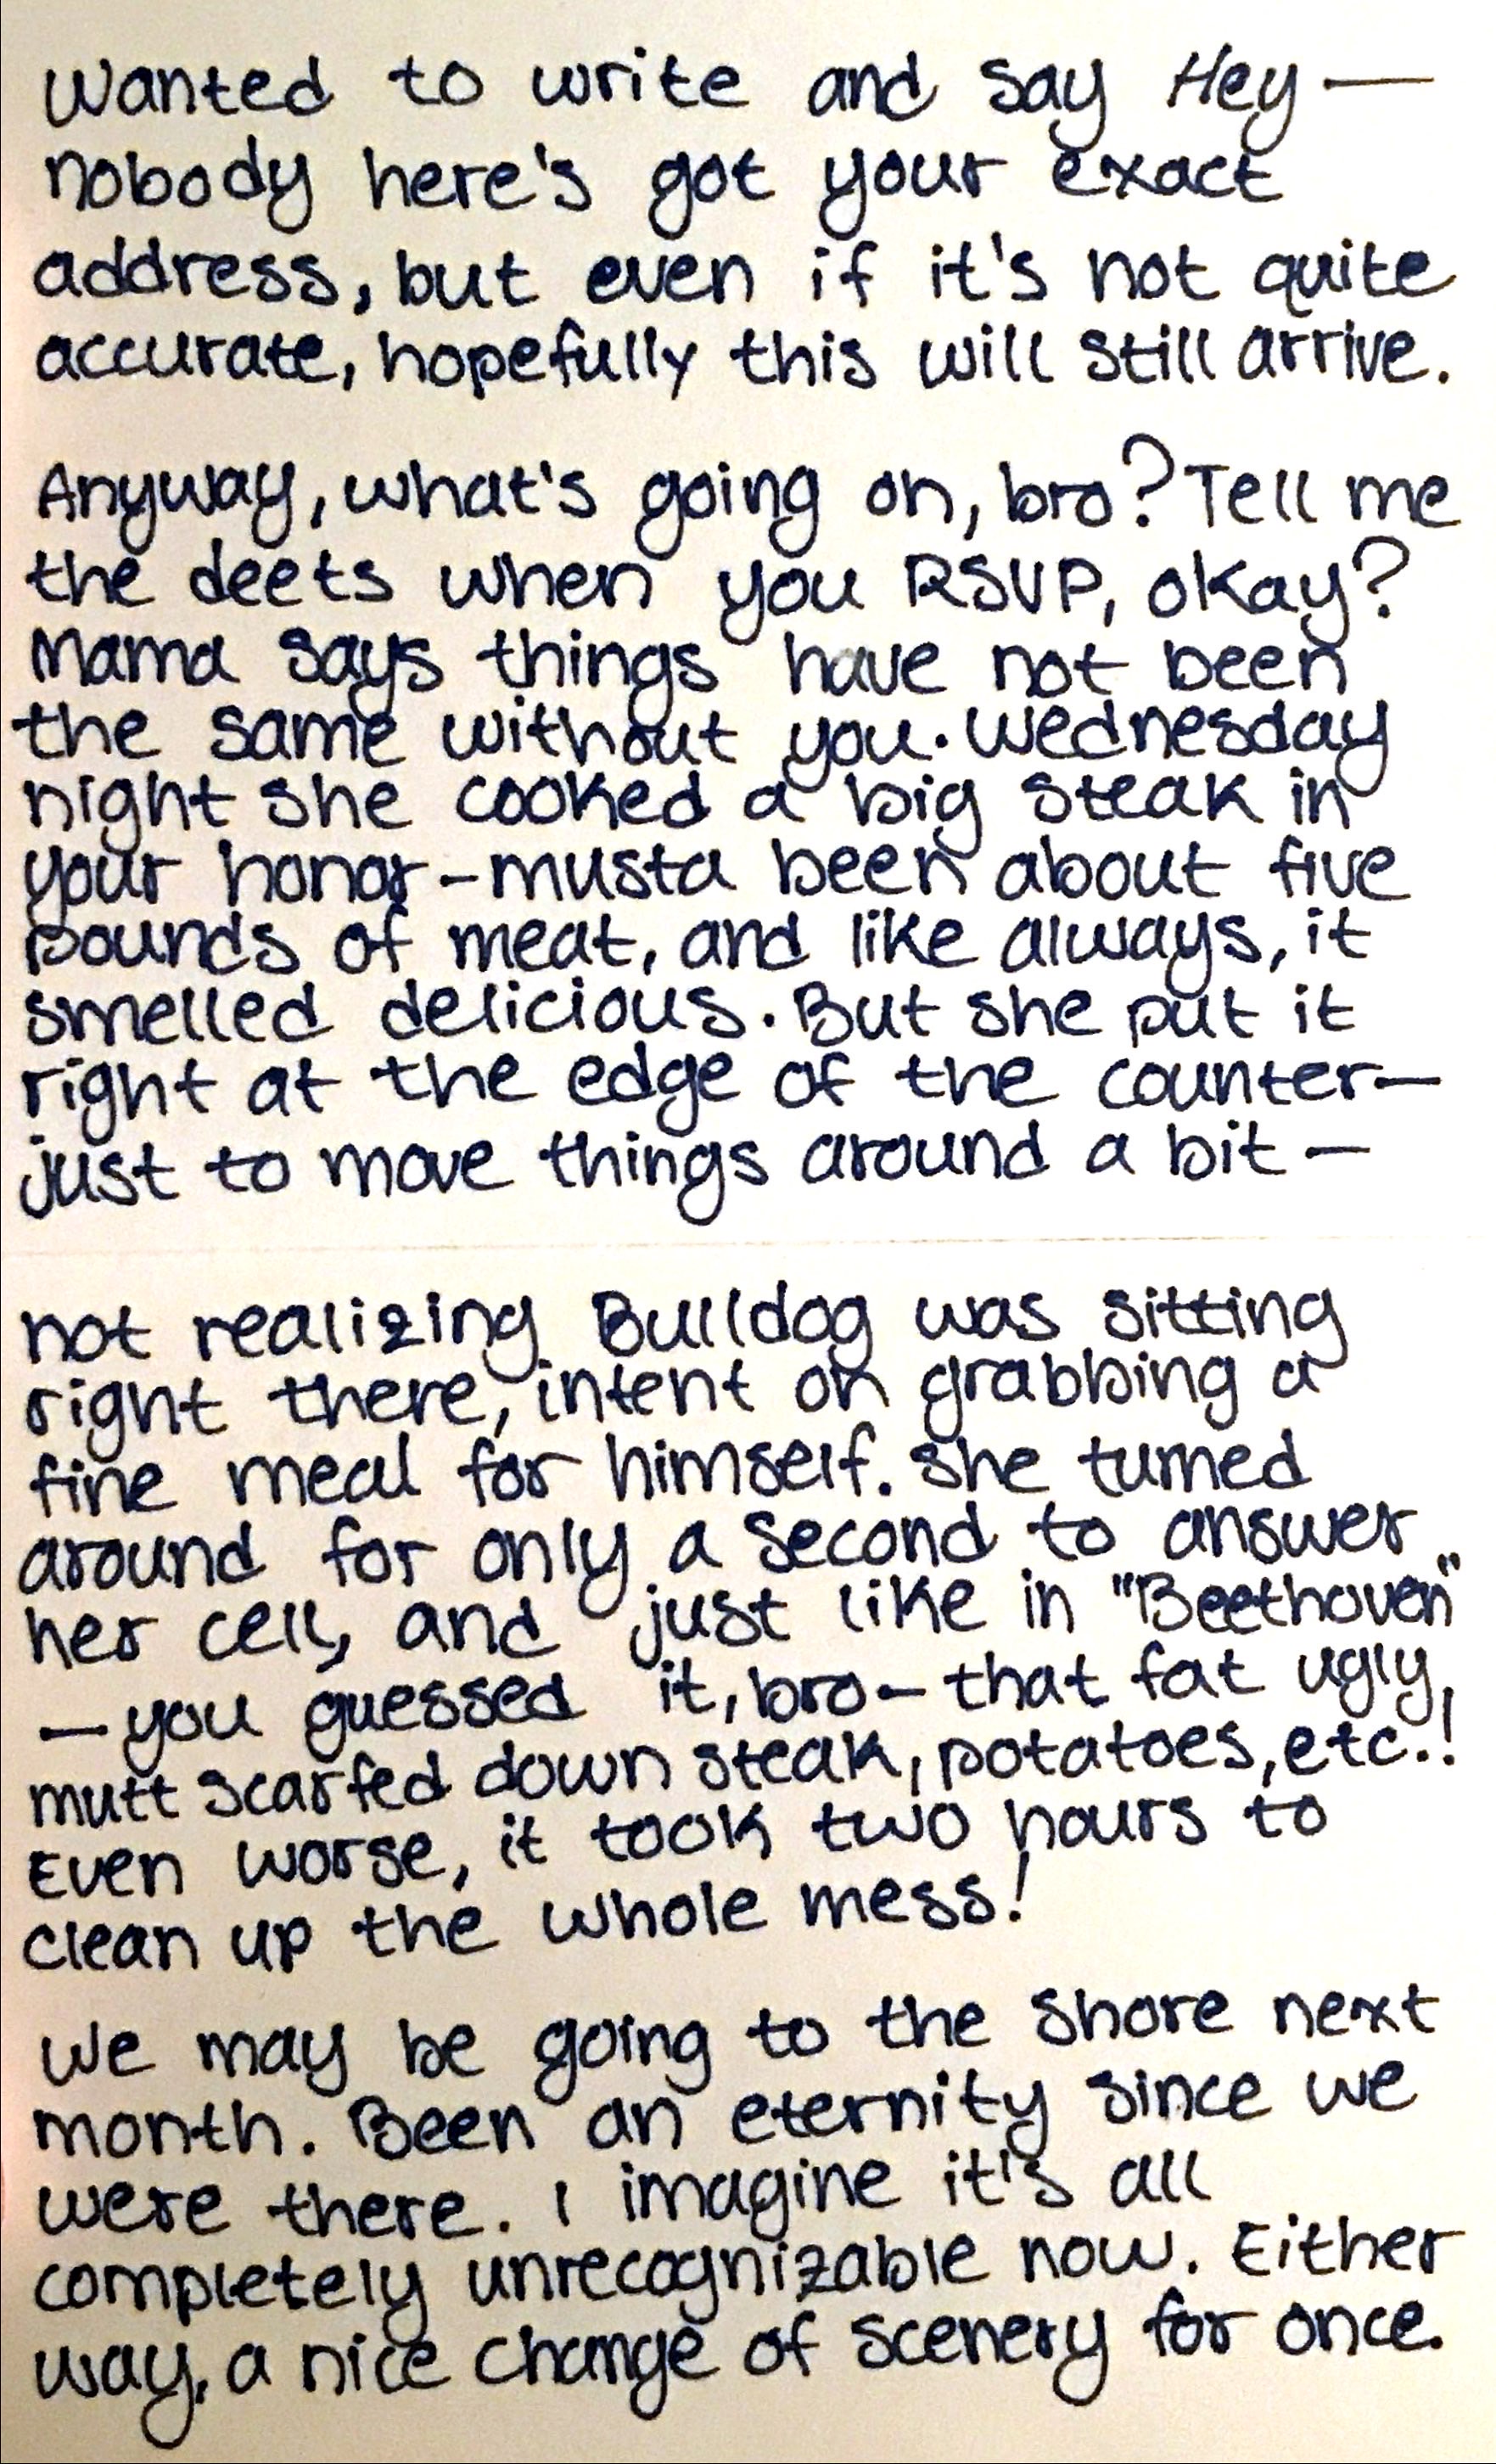 Wanted to write and say Hey—
nobody here's got your exact
address, but even if it's not quite
accurate, hopefully this will still arrive.
Anyway, what's going on, bro? Tell me
the deets when you RSVP, okay?
Mama says things have not been
the same without you. Wednesday
night she cooked a big steak in
your honor-musta been about five
pounds of meat, and like always, it
smelled delicious. But she put it
right at the edge of the counter—
just to move things around a bit—
not realizing Bulldog was sitting
right there, intent on grabbing a
fine meal for himself. She turned
around for only a second to answer
her cell, and just like in "Beethoven"
—you guessed it, bro—that fat ugly
mutt scarfed down steak, potatoes, etc.!
Even worse, it took two hours to
clean up the whole mess!
We may be going to the shore next
month. Been an eternity since we
were there. I imagine it's all
completely unrecognizable now. Either
way, a nice change of scenery for once.